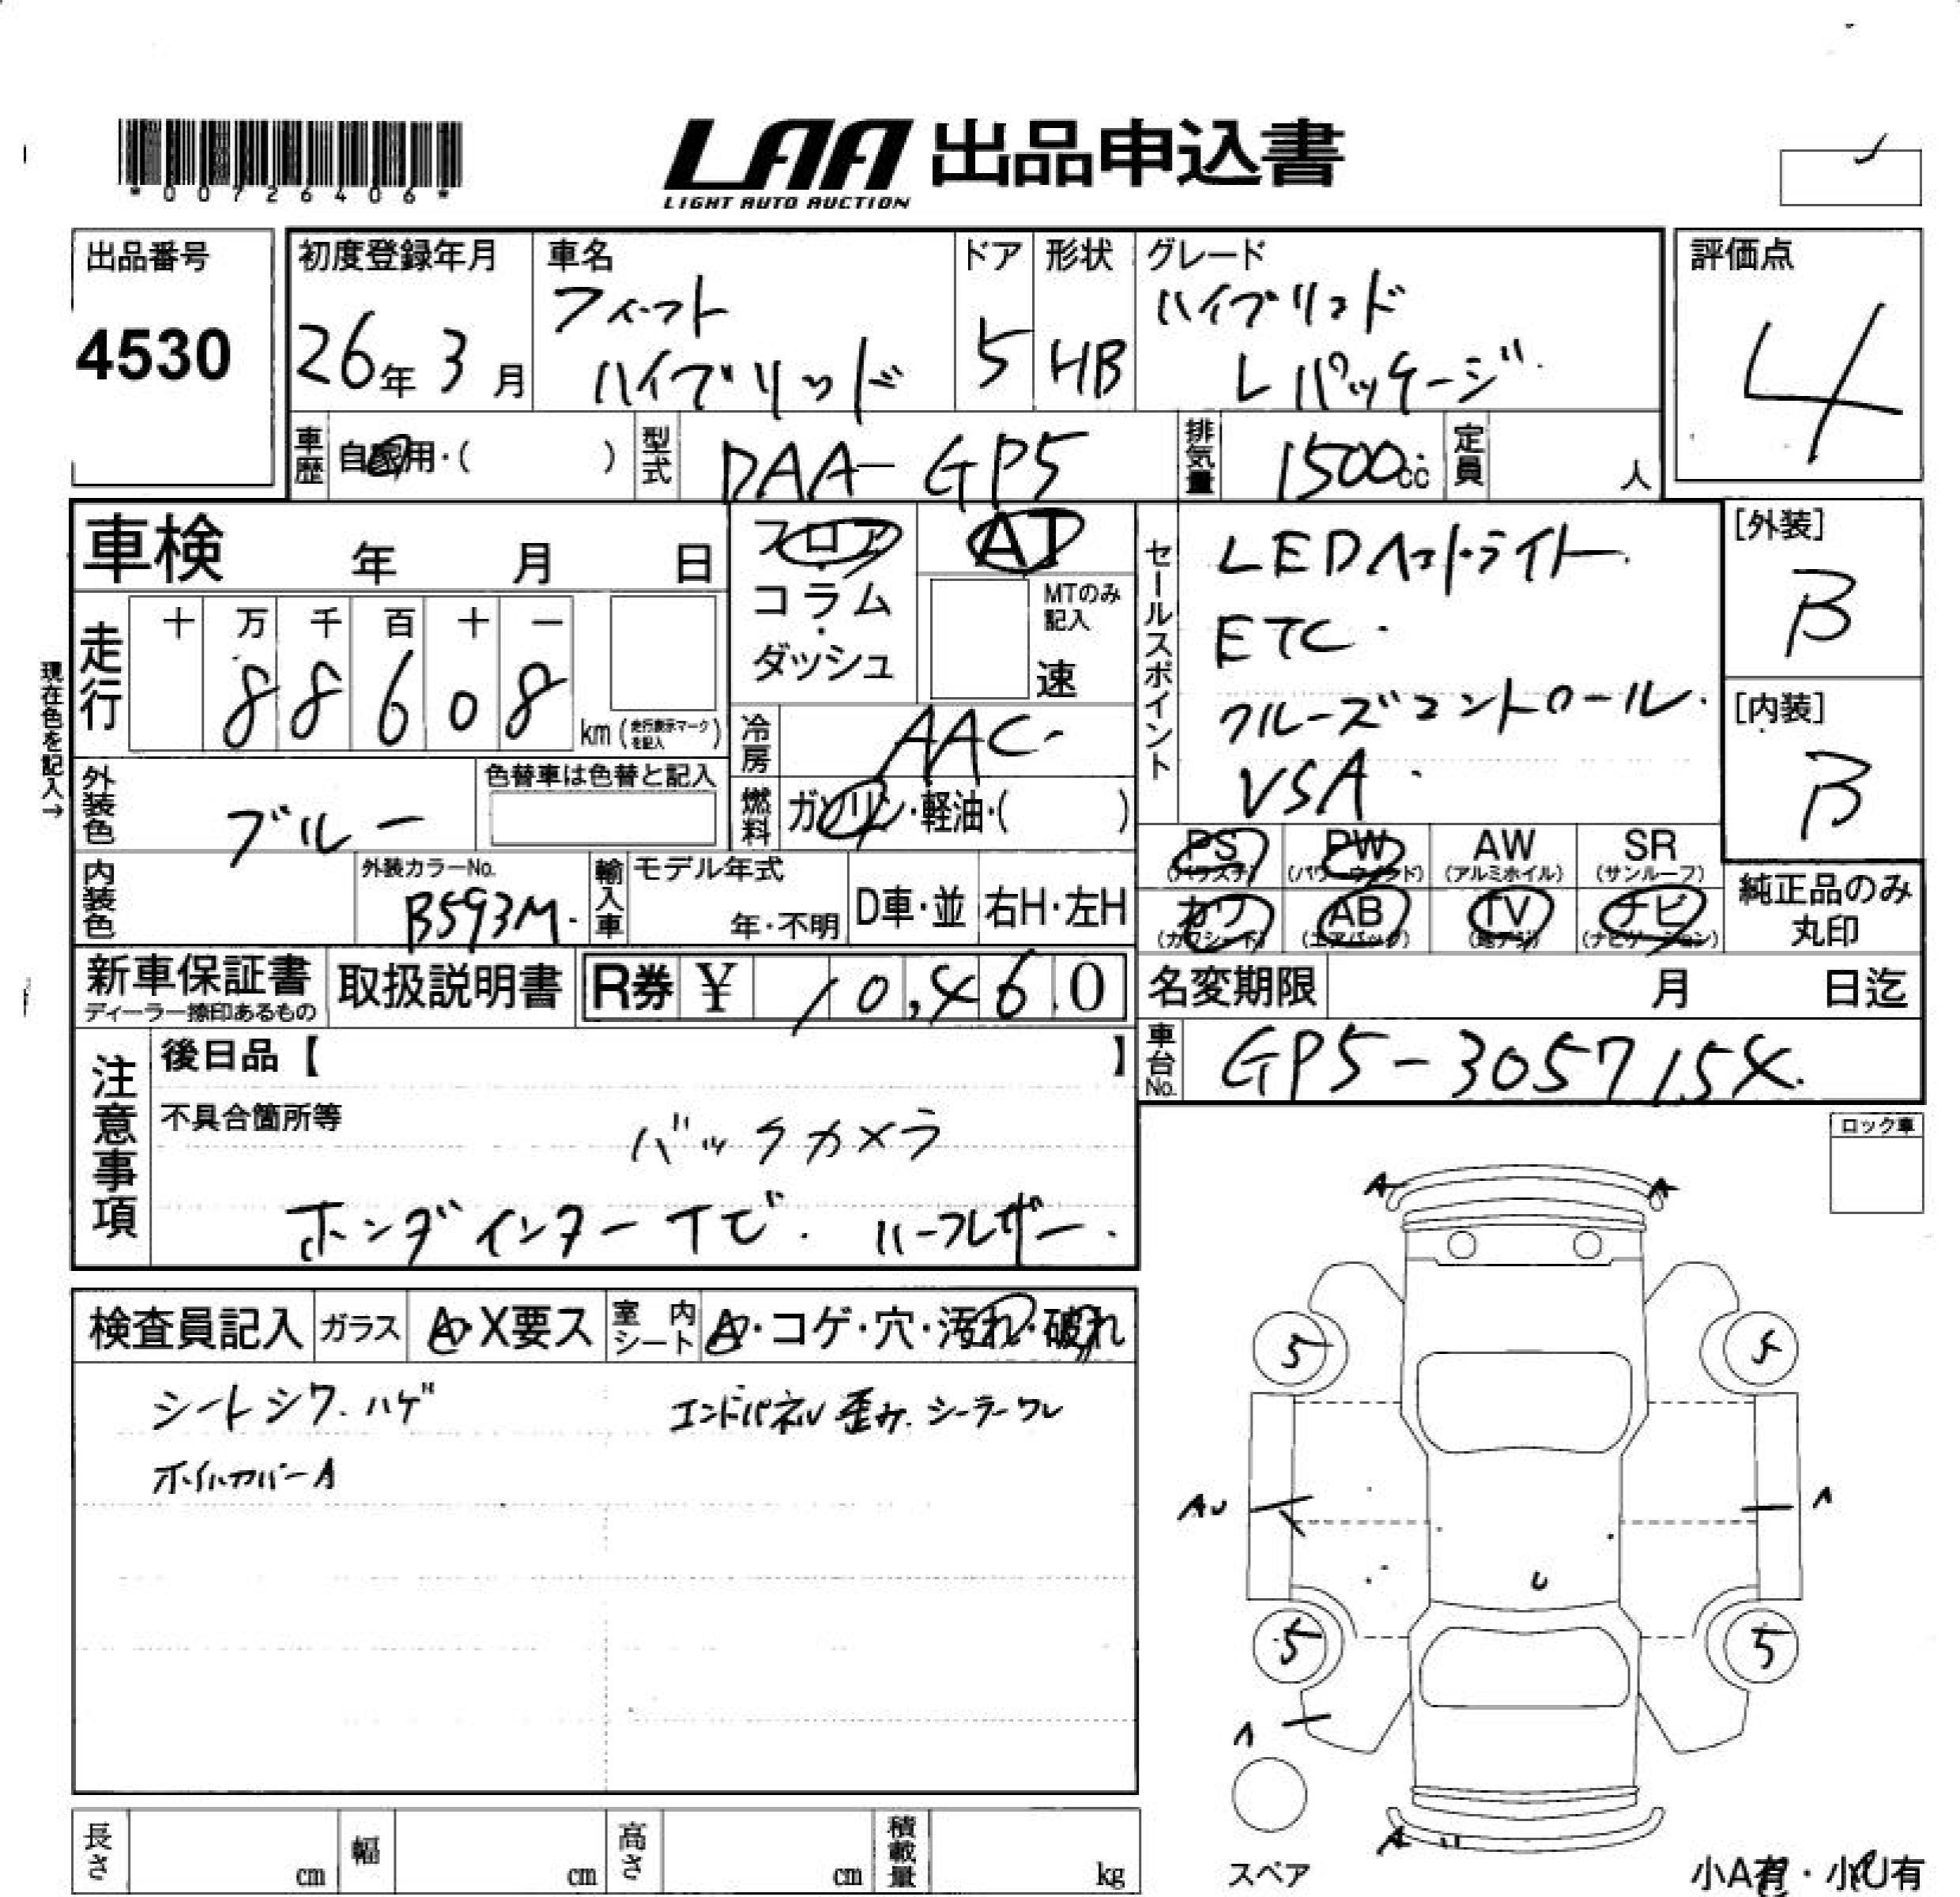 *00726406*
LAA 出品申込書
LIGHT AUTO AUCTION
出品番号
4530
初度登録年月
26年 3月
車名
フィット
ハイブリッド
ドア
5
形状
HB
グレード
ハイブリッド
Lパッケージ
評価点
4
車歴
自家用・( )
型式
DAA-GP5
排気量
1500cc
定員
人
車検 年 月 日
フロア
・
コラム
・
ダッシュ
AT
MTのみ
記入
速
セールスポイント
LEDヘッドライト.
ETC.
クルーズコントロール.
VSA.
[外装]
B
[内装]
B
現在色を記入→
走行
十 万 千 百 十 一
8 8 6 0 8
km (走行表示マークを記入)
冷房
AAC.
外装色
ブルー
色替車は色替と記入
燃料
ガソリン・軽油・( )
PS
(パワステ)
PW
(パワーウィンド)
AW
(アルミホイル)
SR
(サンルーフ)
カワ
(カワシート)
AB
(エアバック)
TV
(地デジ)
ナビ
(ナビゲーション)
純正品のみ
丸印
内装色
外装カラーNo.
B593M.
輸入車
モデル年式
年・不明
D車・並
右H・左H
新車保証書
ディーラー捺印あるもの
取扱説明書
R券 ¥ 10,460
名変期限 月 日迄
車台No.
GP5-3057154.
注意事項
後日品【 】
不具合箇所等
バックカメラ
ホンダインターナビ. ハーフレザー.
ロック車
検査員記入
ガラス
A・X要ス
室内シート
A・コゲ・穴・汚れ・破れ
シートシワ.ハゲ
エンドパネル歪み.シーラーワレ
ホイルカバーA
A
A
5
5
AU
A
U
5
5
A
A
スペア
小A有・小U有
長さ
cm
幅
cm
高さ
cm
積載量
kg